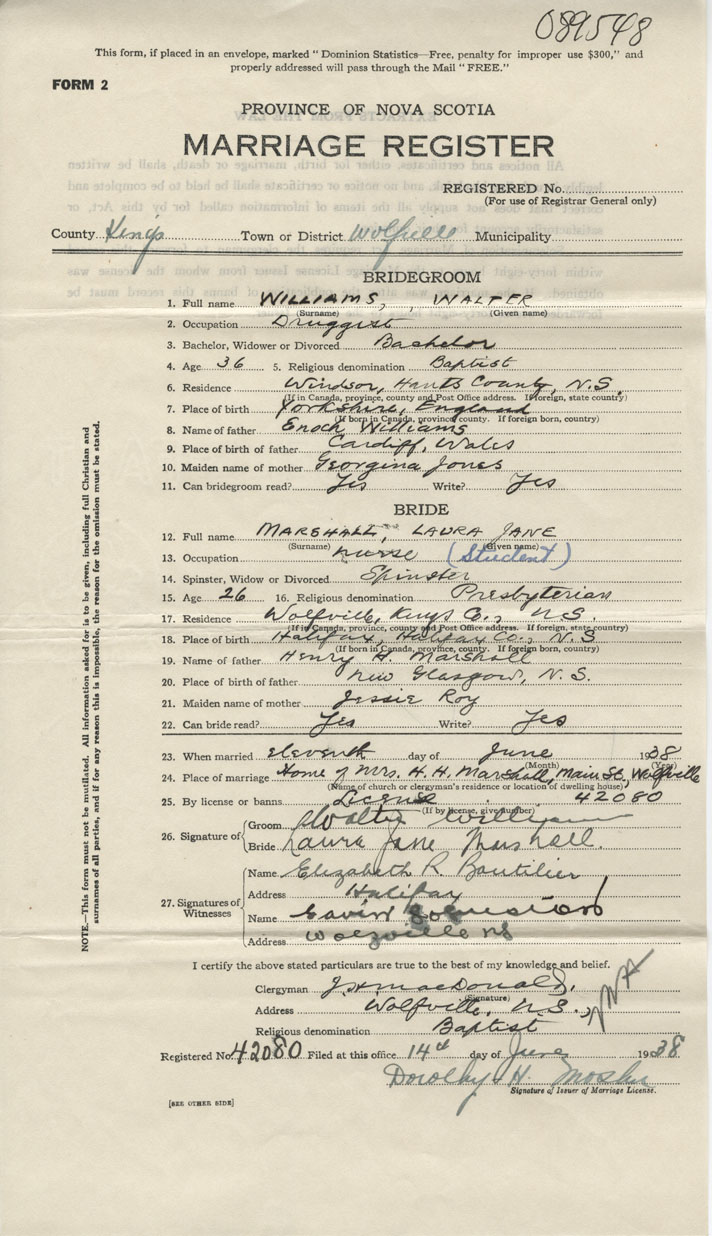 089548
This form, if placed in an envelope, marked "Dominion Statistics—Free, penalty for improper use $300," and
properly addressed will pass through the Mail "FREE."
FORM 2
PROVINCE OF NOVA SCOTIA
MARRIAGE REGISTER
REGISTERED No.
(For use of Registrar General only)
County Kings Town or District Wolfville Municipality
BRIDEGROOM
1. Full name WILLIAMS, WALTER
(Surname) (Given name)
2. Occupation Druggist
3. Bachelor, Widower or Divorced Bachelor
4. Age 36 5. Religious denomination Baptist
6. Residence Windsor, Hants County, N.S.
(If in Canada, province, county and Post Office address. If foreign, state country)
7. Place of birth Yorkshire, England
(If born in Canada, province, county. If foreign born, country)
8. Name of father Enoch Williams
9. Place of birth of father Cardiff, Wales
10. Maiden name of mother Georgina Jones
11. Can bridegroom read? Yes Write? Yes
BRIDE
12. Full name MARSHALL, LAURA JANE
(Surname) (Given name)
13. Occupation nurse (Student)
14. Spinster, Widow or Divorced Spinster
15. Age 26 16. Religious denomination Presbyterian
17. Residence Wolfville, Kings Co., N.S.
(If in Canada, province, county and Post Office address. If foreign, state country)
18. Place of birth Halifax, Halifax Co., N.S
(If born in Canada, province, county. If foreign born, country)
19. Name of father Henry H. Marshall
20. Place of birth of father New Glasgow, N.S.
21. Maiden name of mother Jessie Roy
22. Can bride read? Yes Write? Yes
23. When married eleventh day of June 1938
(Month) (Year)
24. Place of marriage Home of Mrs. H. H. Marshall, Main St., Wolfville
(Name of church or clergyman's residence or location of dwelling house)
25. By license or banns License 42080
(If by license, give number)
26. Signature of Groom Walter Williams
Bride Laura Jane Marshall.
27. Signatures of Witnesses
Name Elizabeth R. Boutilier
Address Halifax
Name Gavin
Address Wolfville NS
I certify the above stated particulars are true to the best of my knowledge and belief.
Clergyman J. H. MacDonald,
(Signature)
Address Wolfville, N.S.
Religious denomination Baptist
Registered No. 42080 Filed at this office 14th day of June 1938
Dorothy H. Mosher
Signature of Issuer of Marriage License.
[SEE OTHER SIDE]
NOTE.—This form must not be mutilated. All information asked for is to be given, including full Christian and
surnames of all parties, and if for any reason this is impossible, the reason for the omission must be stated.